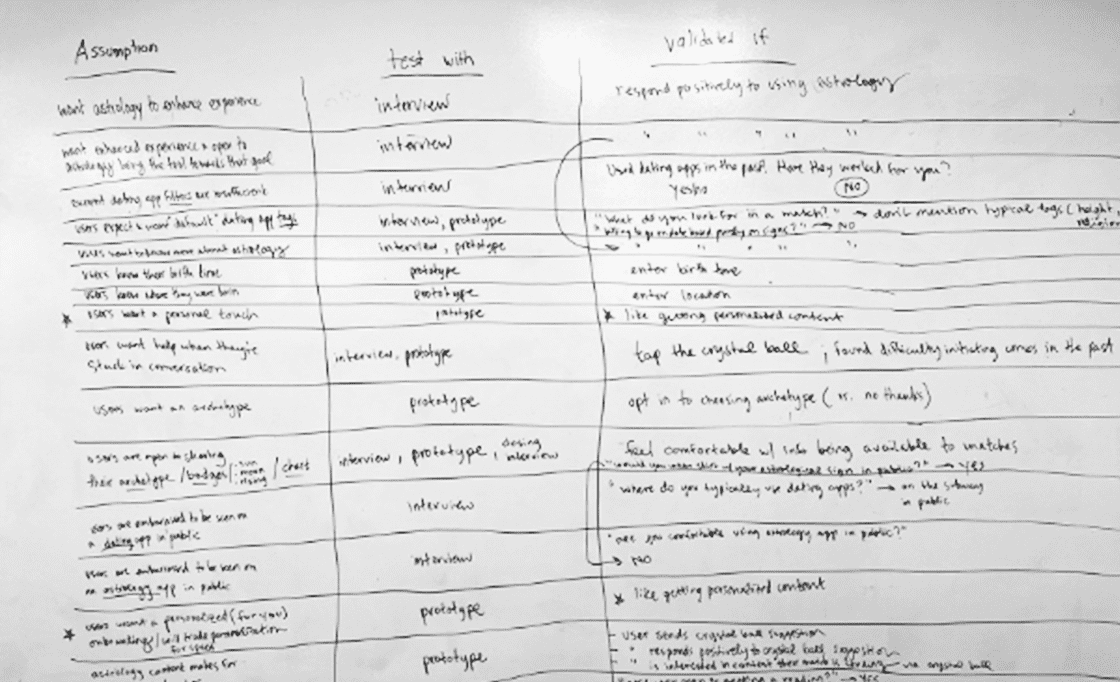 Assumption
test with
validated if
want astrology to enhance experience
interview
respond positively to using astrology
want enhanced experience & open to
astrology being the tool towards that goal
interview
" " " " "
current dating app filters are insufficient
interview
Used dating apps in the past? Have they worked for you?
Yes
NO
users expect "default" dating app tags
interview, prototype
"What do you look for in a match?" → don't mention typical tags (height,
religion
date based on signs?" → NO
users want to know more about astrology
interview, prototype
" " " " "
users know their birth time
prototype
enter birth time
users know where they were born
prototype
enter location
* users want a personal touch
prototype
* like getting personalized content
users want help when they're
stuck in conversation
interview, prototype
tap the crystal ball ; found difficulty initiating convos in the past
users want an archetype
prototype
opt in to choosing archetype (vs. no thanks)
users are open to sharing
their archetype / badges / sun
moon
rising / chart
interview, prototype,
interview
feel comfortable w/ info being available to matches
"would you your astrological sign in public?" → yes
users are embarrassed to be seen on
a dating app in public
interview
"where do you typically use dating apps?" → on the subway
in public
users are embarrassed to be seen on
an astrology app in public
interview
"are you comfortable using astrology app in public?"
→ NO
* users want a personalized (for you)
onboarding / will trade personalization
for speed
prototype
* like getting personalized content
astrology content makes for
prototype
- user sends crystal ball suggestion
- " responds positively to crystal ball suggestion
- " is interested in content their match is sending via crystal ball